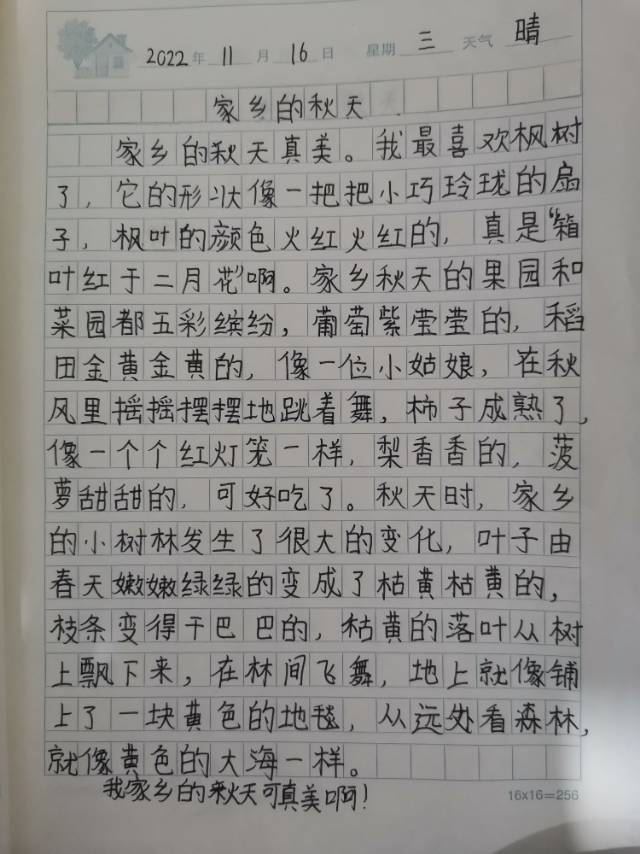 2022年 11月 16日 星期 三 天气 晴
家乡的秋天
家乡的秋天真美。我最喜欢枫树
了，它的形状像一把把小巧玲珑的扇
子，枫叶的颜色火红火红的，真是“箱
叶红于二月花”啊。家乡秋天的果园和
菜园都五彩缤纷，葡萄紫莹莹的，稻
田金黄金黄的，像一位小姑娘，在秋
风里摇摇摆摆地跳着舞，柿子成熟了，
像一个个红灯笼一样，梨香香的，菠
萝甜甜的，可好吃了。秋天时，家乡
的小树林发生了很大的变化，叶子由
春天嫩嫩绿绿的变成了枯黄枯黄的，
枝条变得干巴巴的，枯黄的落叶从树
上飘下来，在林间飞舞，地上就像铺
上了一块黄色的地毯，从远处看森林，
就像黄色的大海一样。
我家乡的秋天可真美啊！
16x16=256